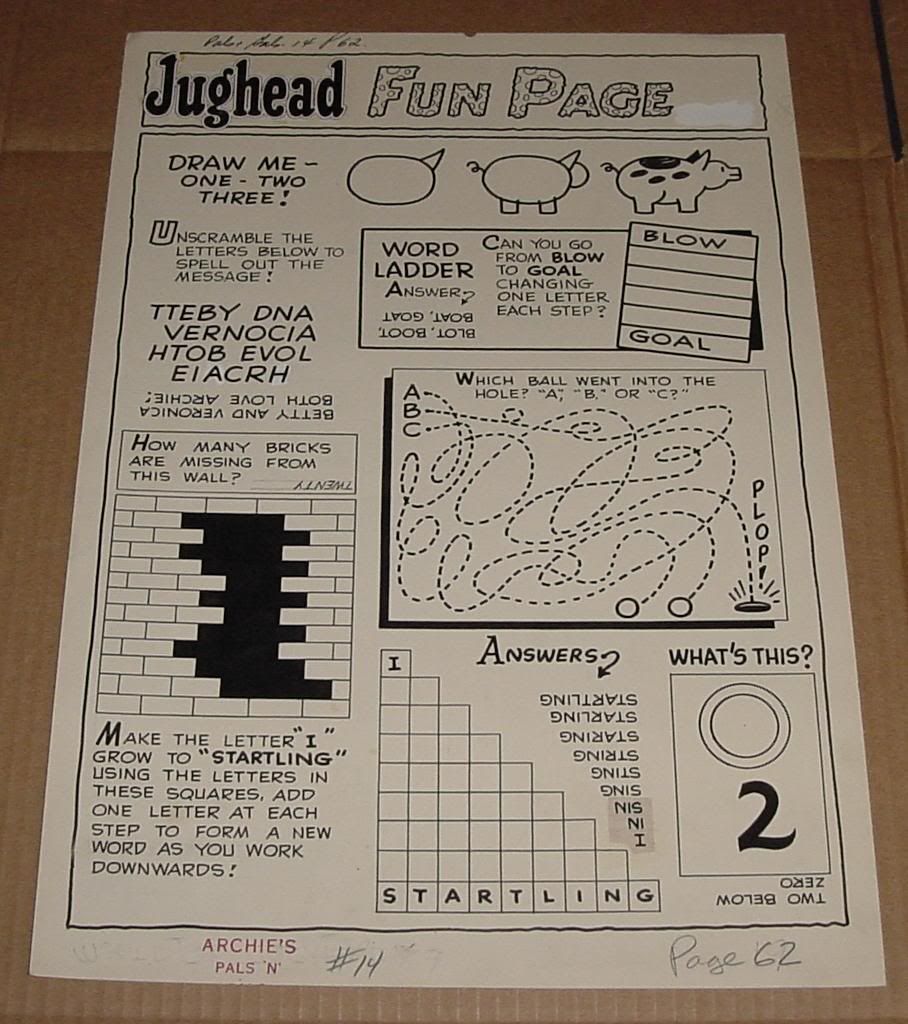 Pals 'n' Gals 14 P62
Jughead FUN PAGE
DRAW ME ~
ONE - TWO
THREE!
UNSCRAMBLE THE
LETTERS BELOW TO
SPELL OUT THE
MESSAGE!
TTEBY DNA
VERNOCIA
HTOB EVOL
EIACRH
BETTY AND VERONICA
BOTH LOVE ARCHIE!
WORD
LADDER
ANSWER
BLOT, BOOT,
BOAT, GOAT
CAN YOU GO
FROM BLOW
TO GOAL
CHANGING
ONE LETTER
EACH STEP?
BLOW
GOAL
HOW MANY BRICKS
ARE MISSING FROM
THIS WALL?
TWENTY
WHICH BALL WENT INTO THE
HOLE? "A", "B," OR "C?"
A
B
C
PLOP!
MAKE THE LETTER "I"
GROW TO "STARTLING"
USING THE LETTERS IN
THESE SQUARES, ADD
ONE LETTER AT EACH
STEP TO FORM A NEW
WORD AS YOU WORK
DOWNWARDS!
I
STARTLING
ANSWERS
I
IN
SIN
SING
STING
STRING
STARING
STARLING
STARTLING
WHAT'S THIS?
2
TWO BELOW
ZERO
ARCHIE'S
PALS 'N'
#14
Page 62